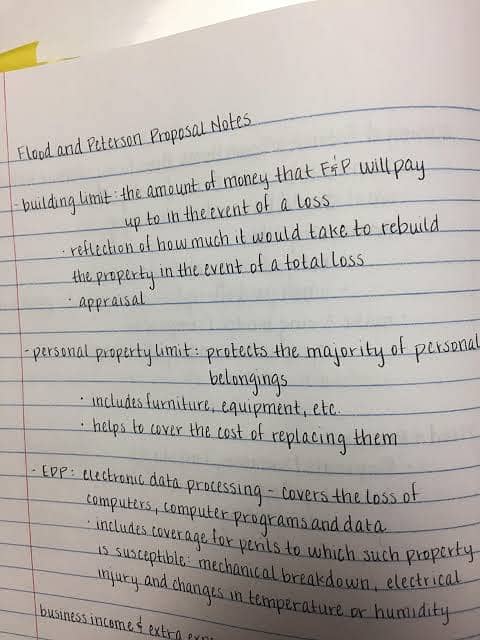 Flood and Peterson Proposal Notes
- building limit: the amount of money that F&P will pay
up to in the event of a loss
· reflection of how much it would take to rebuild
the property in the event of a total loss
· appraisal
- personal property limit: protects the majority of personal
belongings
· includes furniture, equipment, etc.
· helps to cover the cost of replacing them
- EDP: electronic data processing - covers the loss of
computers, computer programs and data
· includes coverage for perils to which such property
is susceptible: mechanical breakdown, electrical
injury and changes in temperature or humidity
business income & extra